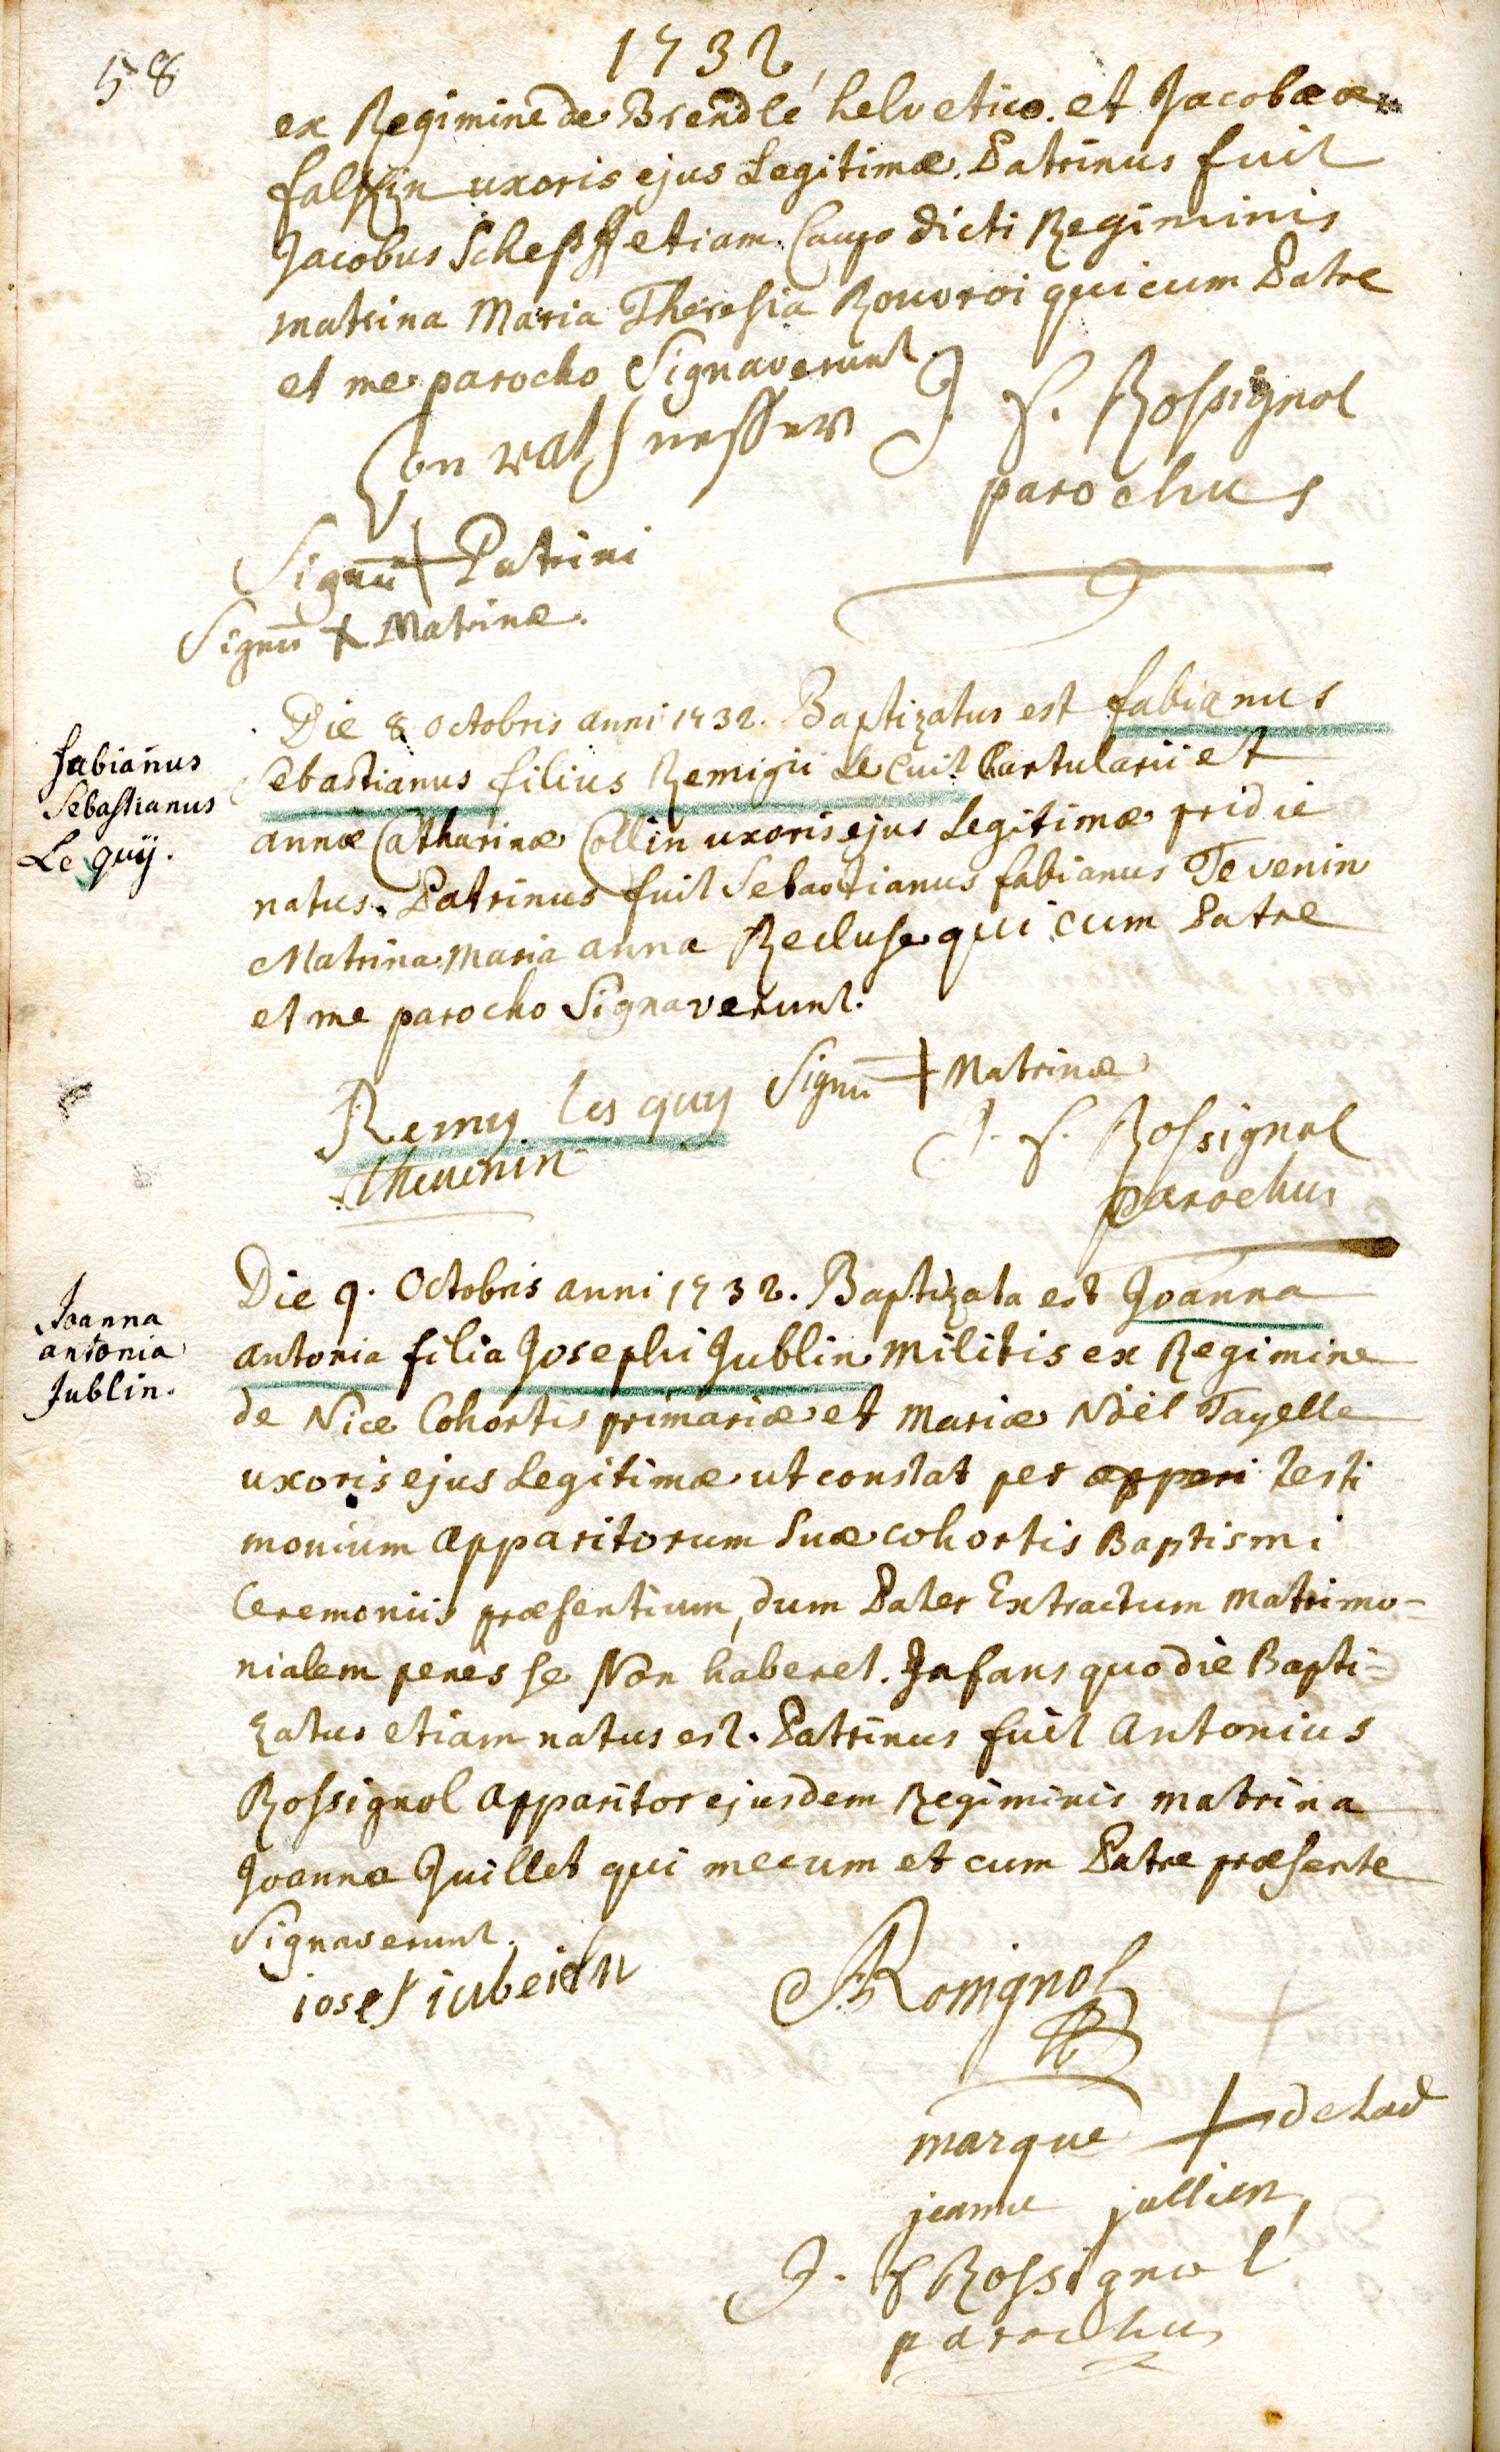 58
1732
ex Regimine de Brendlé helvetico. et Jacobææ
uxoris ejus Legitimæ. Patrinus fuit
Jacobus etiam Caupo dicti Regiminis
matrina Maria Theresia Rouvroi qui cum Patre
et me parocho Signaverunt
J. f. Rossignol
parochus
Signū + Patrini
Signū + Matrinæ.
fabianus
Sebastianus
Le quÿ.
Die 8 Octobris anni 1732. Baptizatus est fabianus
Sebastianus filius Remigii Le Cuit Cartularii et
annæ Catharinæ Collin uxoris ejus Legitimæ pridie
natus. Patrinus fuit Sebastianus fabianus Tevenin
Matrina Maria anna Recluse qui cum Patre
et me parocho Signaverunt.
Remy les quy Signū + Matrinæ
thevenin
J. f. Rossignol
parochus
Joanna
antonia
Jublin.
Die 9. Octobris anni 1732. Baptizata est Joanna
antonia filia Josephi Jublin militis ex Regimine
de Nice Cohortis primariæ et Mariæ Noël Tayelle
uxoris ejus Legitimæ ut constat per appari testi
monium apparitorum Suæ cohortis Baptismi
Ceremoniis præsentium, dum Pater Extractum matrimo=
nialem penes se Non haberet. Infans quo die Bapti=
zatus etiam natus est. Patrinus fuit Antonius
Rossignol apparitor ejusdem Regiminis matrina
Joanna Juillet qui mecum et cum Patre præsente
Signaverunt.
iosef iubein
Rossignol
marque + de lad
jeanne jullien
J. f Rossignol
parochus